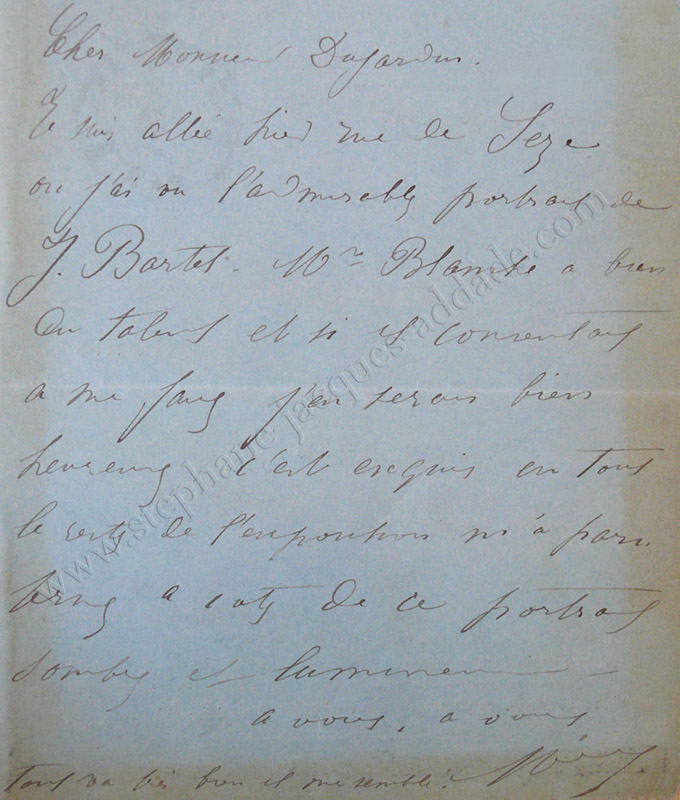 Cher Monsieur Dujardin.
Je suis allée hier rue de Seze
ou j'ai vu l'admirable portrait de
J. Bartet. Mr Blanche a bien
du talent et si il consentait
a me faire j'en serais bien
heureuse c'est exquis en tout
le reste de l'exposition m'a paru
terne a coté de ce portrait
sombre et lumineux
a vous, a vous
tout va très bien il me semble. Méry
www.stephane-jacques-addade.com